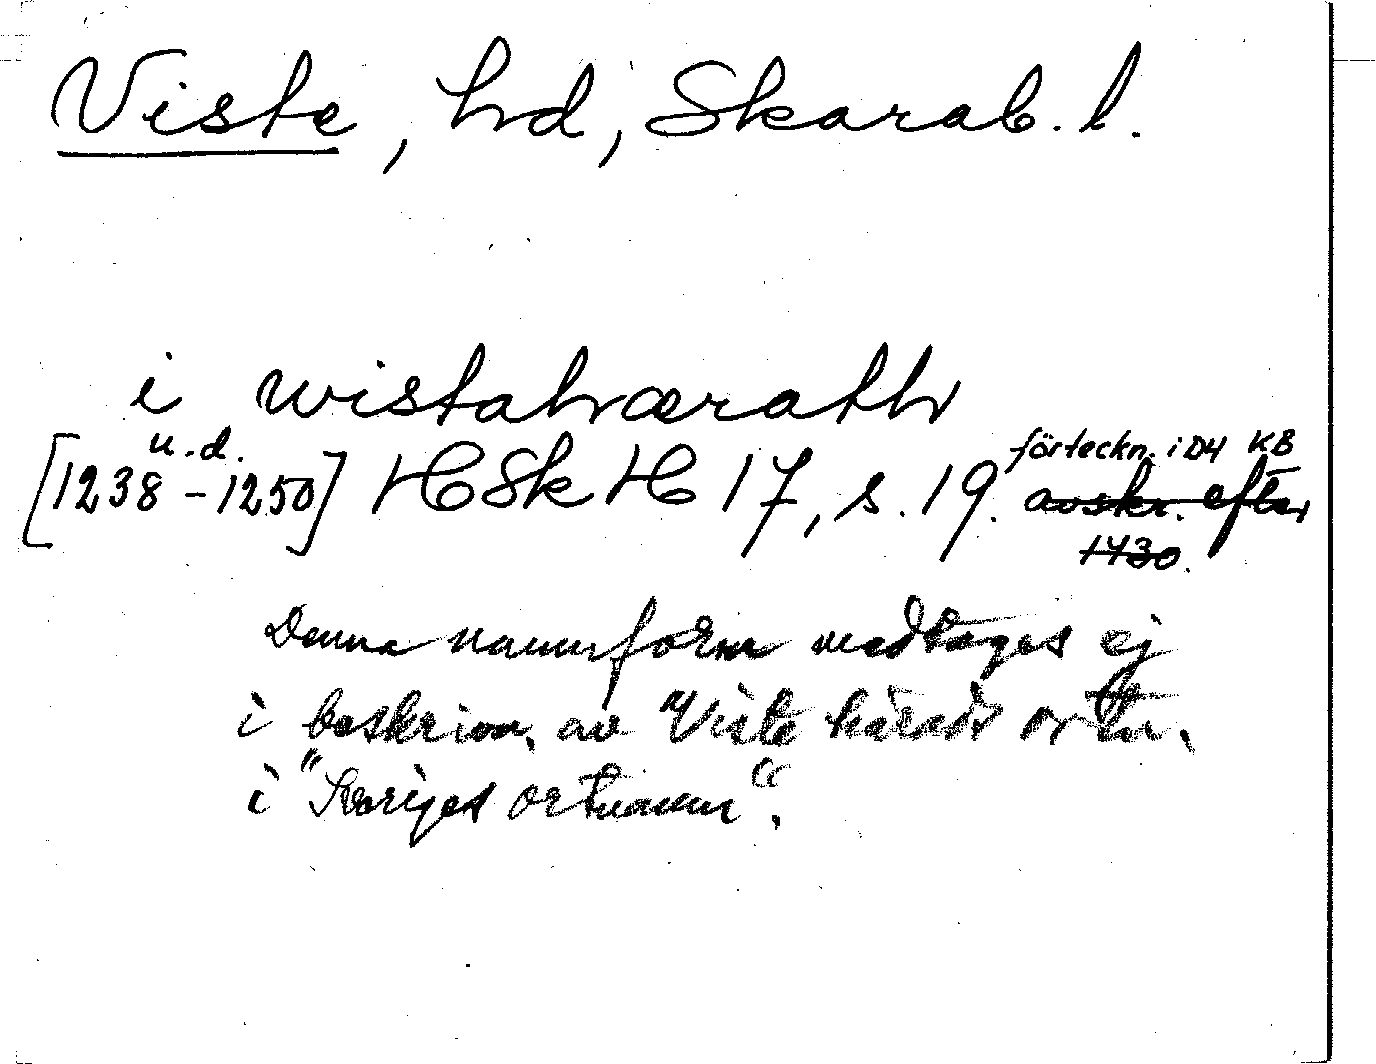 Viste, hd, Skarab. l.
i wistahærath
u. d.
[1238 - 1250] HSkH 17, s. 19. förteckn. i D4 KB
avskr. efter
1430.
Denna namnform medtages ej
i beskrivn. av "Viste härads ortn.
i "Sveriges ortnamn".